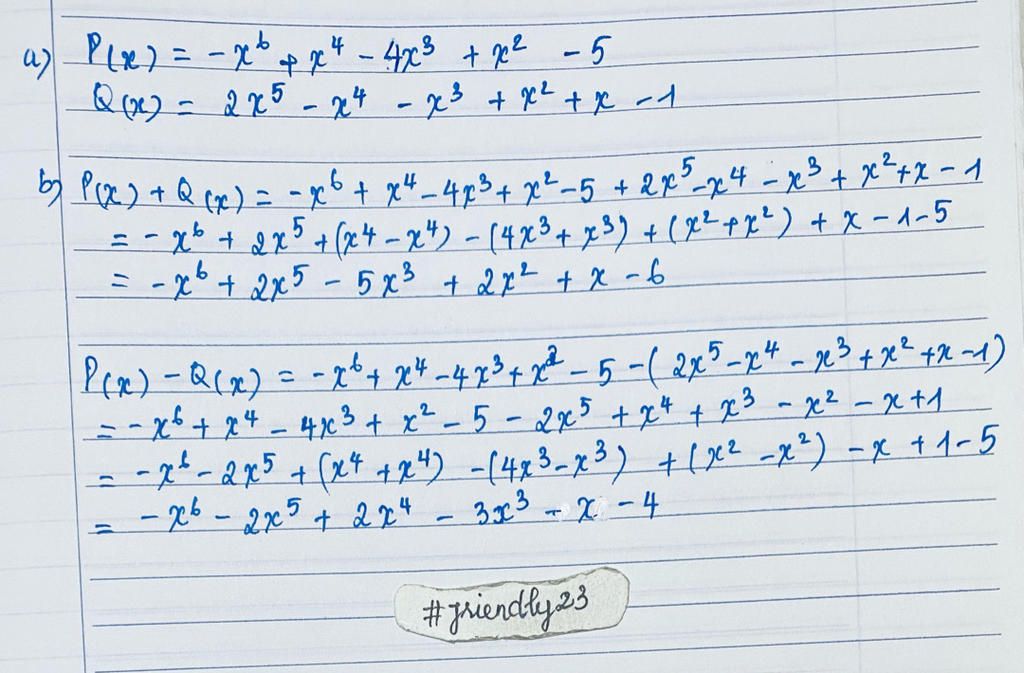 a) P(x) = -x⁶ + x⁴ - 4x³ + x² - 5
Q(x) = 2x⁵ - x⁴ - x³ + x² + x - 1
b) P(x) + Q(x) = -x⁶ + x⁴ - 4x³ + x² - 5 + 2x⁵ - x⁴ - x³ + x² + x - 1
= -x⁶ + 2x⁵ + (x⁴ - x⁴) - (4x³ + x³) + (x² + x²) + x - 1 - 5
= -x⁶ + 2x⁵ - 5x³ + 2x² + x - 6
P(x) - Q(x) = -x⁶ + x⁴ - 4x³ + x² - 5 - (2x⁵ - x⁴ - x³ + x² + x - 1)
= -x⁶ + x⁴ - 4x³ + x² - 5 - 2x⁵ + x⁴ + x³ - x² - x + 1
= -x⁶ - 2x⁵ + (x⁴ + x⁴) - (4x³ - x³) + (x² - x²) - x + 1 - 5
= -x⁶ - 2x⁵ + 2x⁴ - 3x³ - x - 4
#friendly23